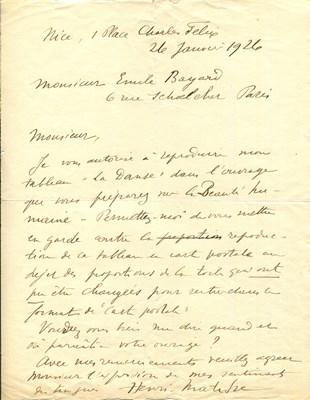 Nice, 1 Place Charles Felix
26 Janvier 1926
Monsieur Emile Bayard
6 rue Schoelcher Paris
Monsieur,
Je vous autorise à reproduire mon
tableau "la Danse" dans l'ouvrage
que vous préparez sur la Beauté hu-
maine - Permettez-moi de vous mettre
en garde contre la proportion reproduc-
tion de ce tableau en carte postale au
sujet des proportions de la toile qui ont
pu être changées pour rentrer dans le
format de "cart postal"
Voudrez vous bien me dire quand et
où paraîtra votre ouvrage ?
Avec mes remerciements veuillez agréer
Monsieur l'expression de mes sentiments
distingués Henri Matisse